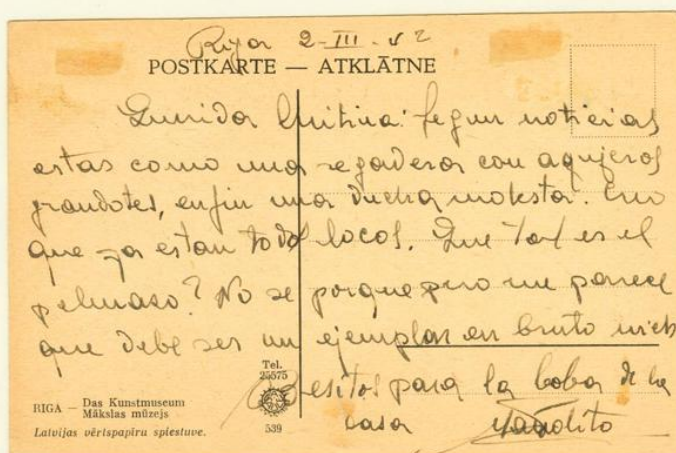 Riga 2-III-42
POSTKARTE — ATKLĀTNE
Querida Quitina: segun noticias
estas como una regadera con agujeros
grandotes, en fin una ducha molesta. Creo
que ya estan todos locos. Que tal es el
pelmaso? No se porque pero me parece
que debe ser un ejemplar en bruto
Besitos para la boba de la
casa
Tel.
25575
RIGA — Das Kunstmuseum
Mākslas mūzejs
539
Latvijas vērtspapīru spiestuve.